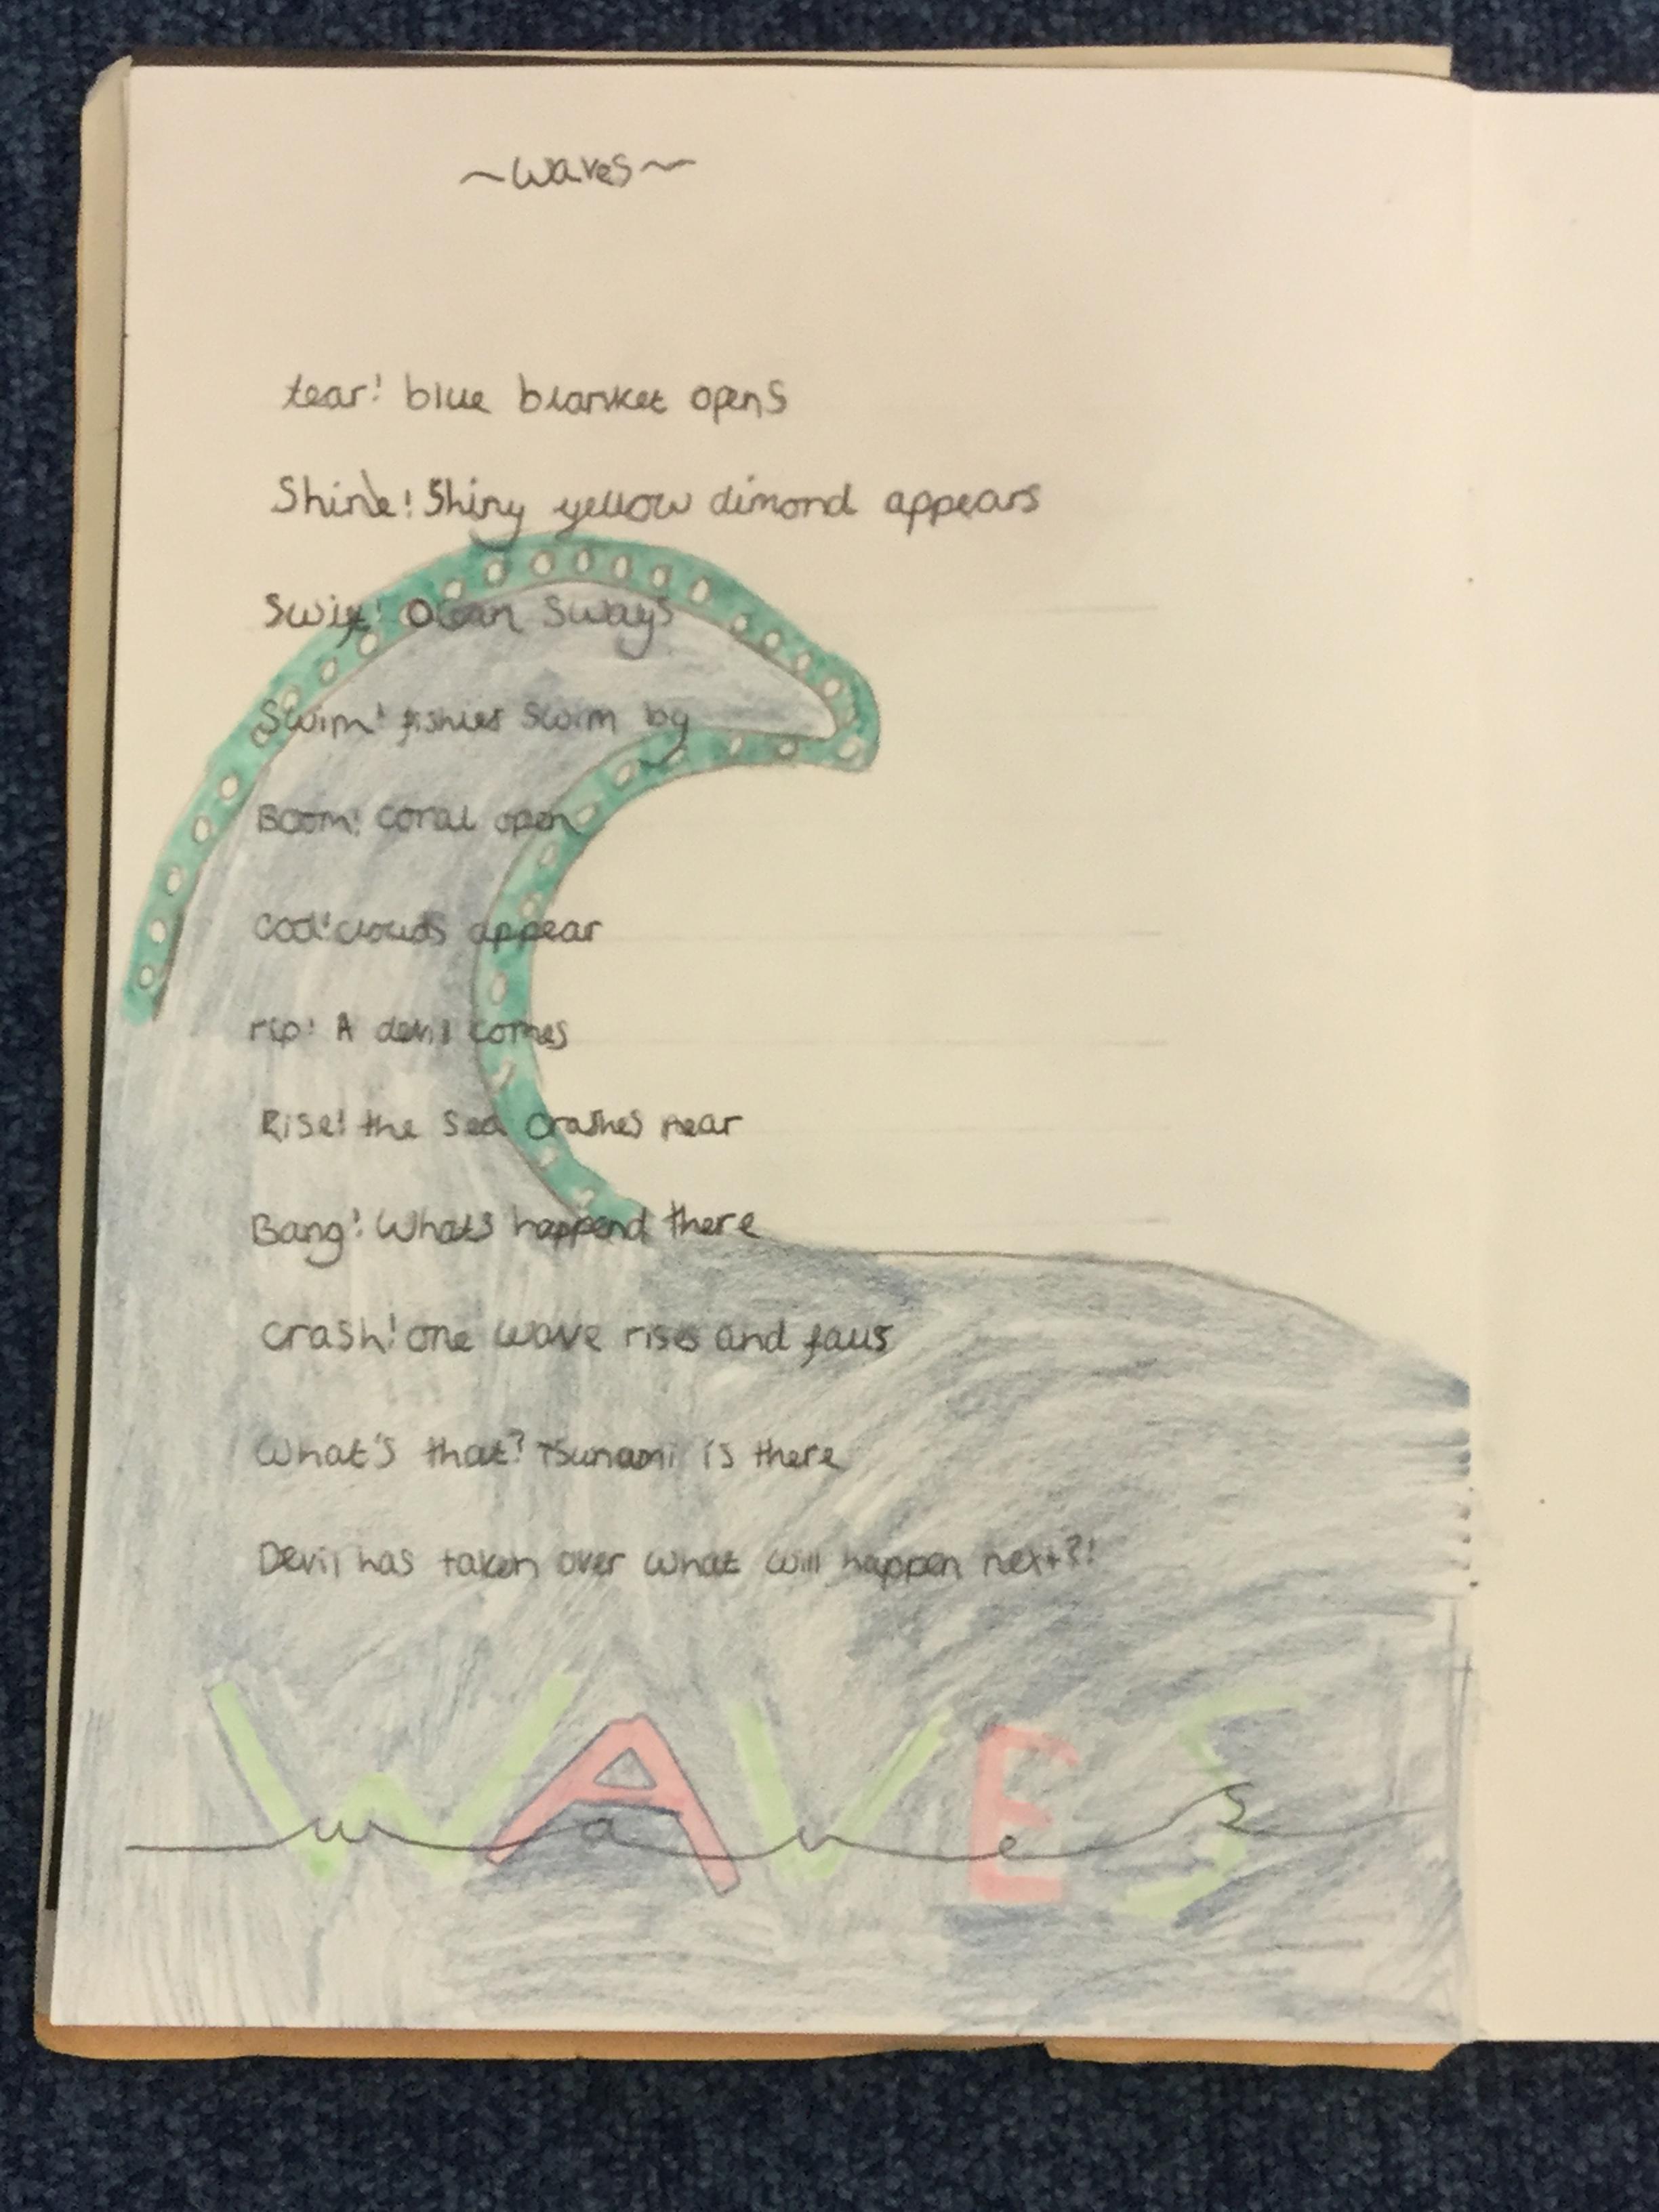 ~Waves~
tear! blue blanket opens
Shine! Shiny yellow dimond appears
Swift! Ocean Sways
Swim! fishies Swim by
Boom! coral open
Cool! clouds appear
rip! A devil comes
Rise! the Sea Crashes near
Bang! Whats happend there
crash! one wave rises and falls
What's that? Tsunami is there
Devil has taken over what will happen next?!
WAVES
waves